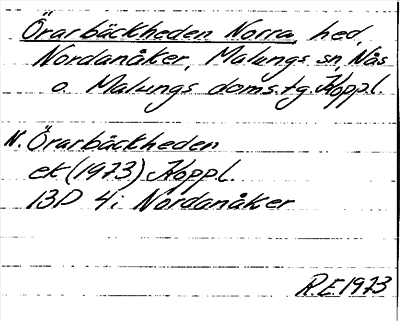 Örarbäckheden Norra, hed,
Nordanåker, Malungs sn, Nås
o. Malungs doms.tg. Koppl.
N. Örarbäckheden
ek (1973) Koppl.
13D 4i Nordanåker
R.E. 1973